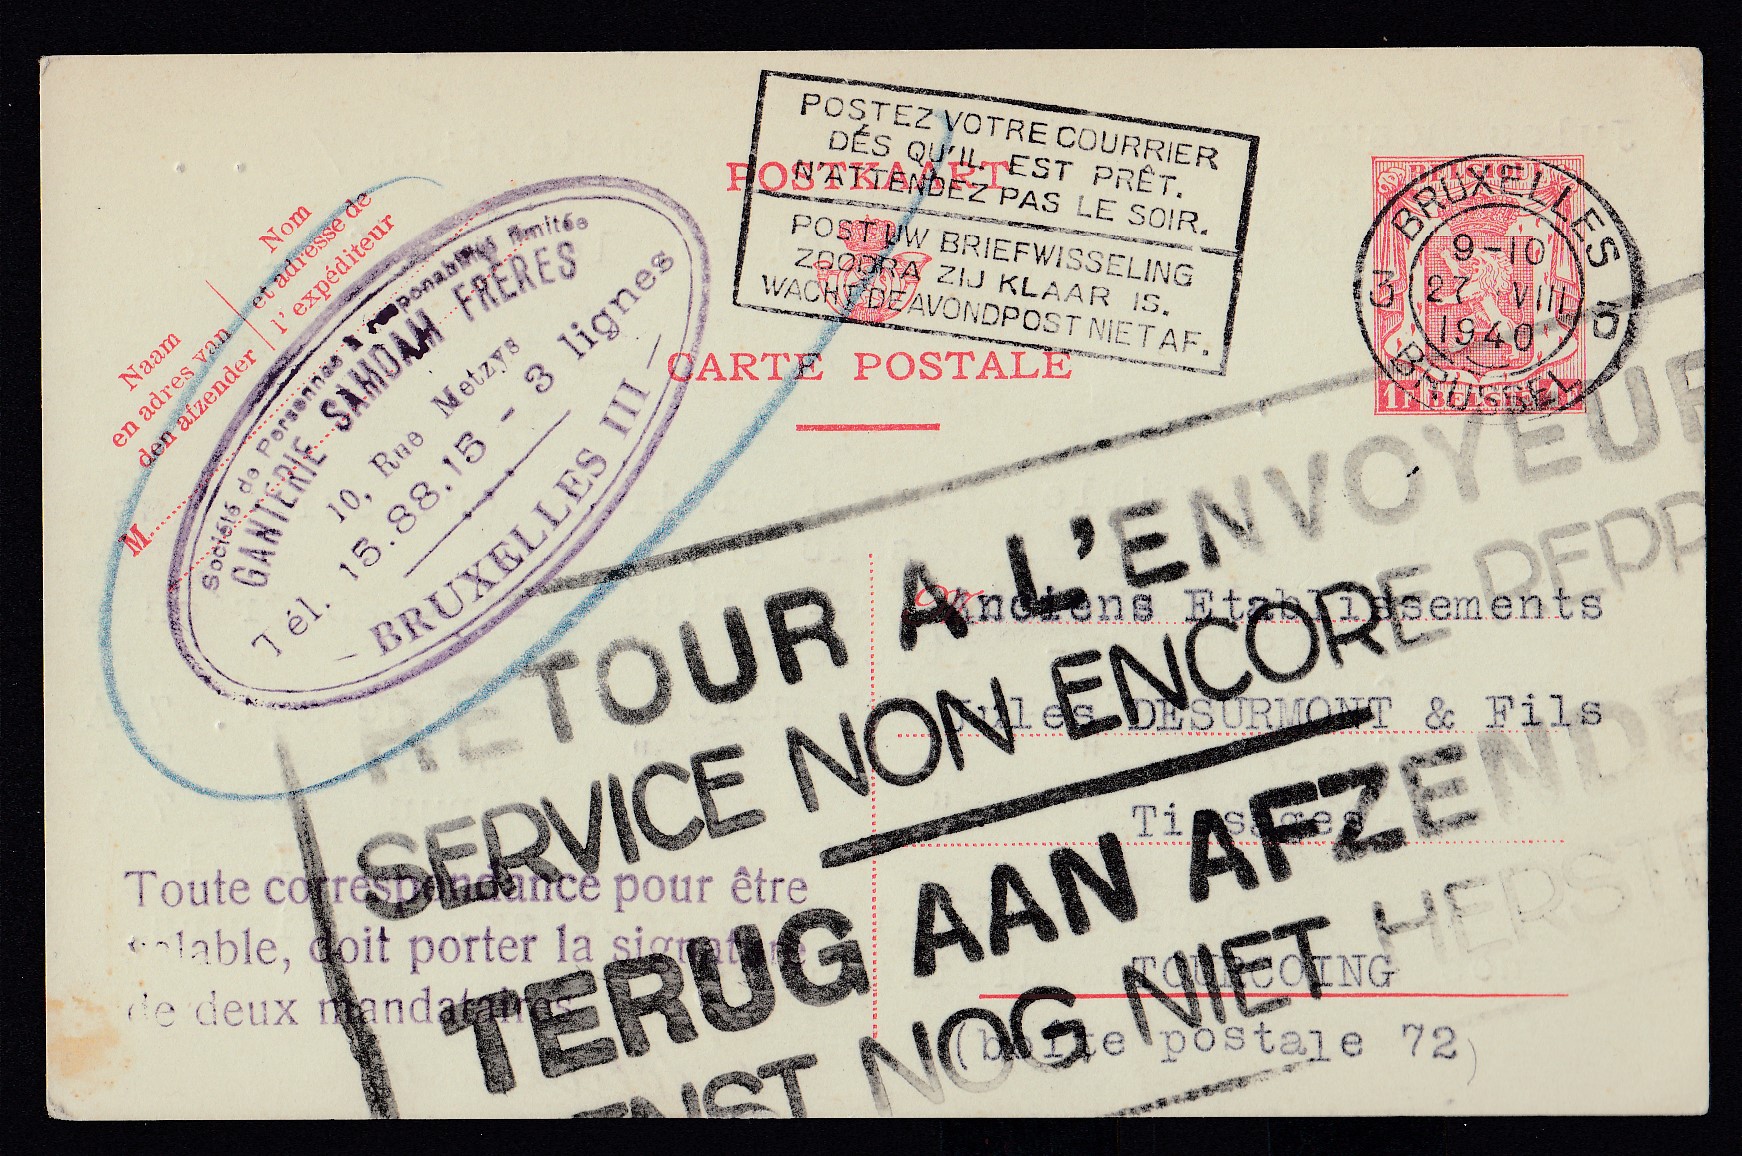 POSTEZ VOTRE COURRIER
DÉS QU'IL EST PRÊT.
N'ATTENDEZ PAS LE SOIR.
POST UW BRIEFWISSELING
ZOODRA ZIJ KLAAR IS.
WACHT DE AVONDPOST NIET AF.
POSTKAART
CARTE POSTALE
BELGIQUE
1F BELGIE
BRUXELLES
3 9-10
27 VIII
1940
BRUSSEL
Nom
et adresse de
l'expéditeur
Naam
en adres van
den afzender
M
Société de Personnes à responsabilité limitée
GANTERIE SAMDAM FRERES
10, Rue Metzys
Tél. 15.88.15 - 3 lignes
- BRUXELLES III -
RETOUR A L'ENVOYEUR
SERVICE NON ENCORE REPR
TERUG AAN AFZENDE
ENST NOG NIET HERSTE
Anciens Etablissements
Jules DESURMONT & Fils
Tissages
TOURCOING
(boîte postale 72)
Toute correspondance pour être
valable, doit porter la signature
de deux mandataires